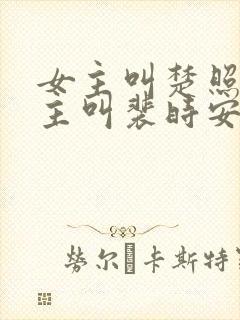 女主叫楚照
主叫裴时安
劳尔卡斯特